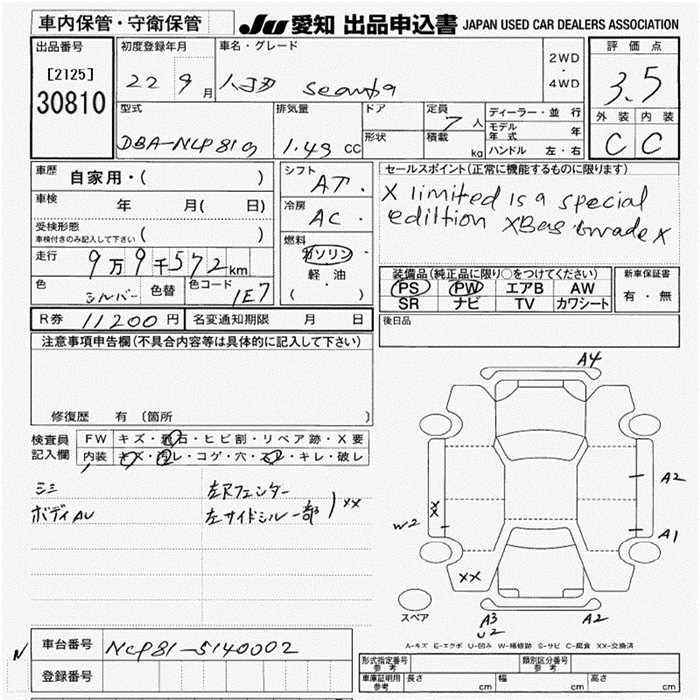 車内保管・守衛保管
JU 愛知 出品申込書 JAPAN USED CAR DEALERS ASSOCIATION
出品番号
[2125]
30810
初度登録年月
22 9月
車名・グレード
トヨタ scanta
2WD
・
4WD
評価点
3.5
外装 内装
C C
型式
DBA-NCP81G
排気量
1.49 CC
ドア
形状
定員
7人
積載 kg
ディーラー・並行
モデル年式 年
ハンドル 左・右
車歴
自家用・( )
車検
年 月( 日)
受検形態
車検付きのみ記入して下さい ( )
走行
9万9千572km
色
シルバー
色替
色コード
1E7
シフト
AT
冷房
AC
燃料
ガソリン
軽油
( ・ )
セールスポイント(正常に機能するものに限ります)
X limited is a special
ediltion XBas Grade X
装備品(純正品に限り○をつけてください)
PS PW エアB AW
SR ナビ TV カワシート
新車保証書
有・無
R券 11200円 名変通知期限 月 日
後日品
注意事項申告欄(不具合内容等は具体的に記入して下さい)
修復歴 有 〔箇所 〕
検査員
記入欄
FW キズ・飛石・ヒビ割・リペア跡・X要
内装 キズ・汚レ・コゲ・穴・スレ・キレ・破レ
ミミ
ボディAU
左Rフェンダー
左サイドシル一部 ) XX
A4
A2
A1
XX
W2
XX
A3
U2
A2
スペア
A-キズ E-エクボ U-凹み W-補修跡 S-サビ C-腐食 XX-交換済
N
車台番号
NCP81-5140002
登録番号
形式指定番号
参考
類別区分番号
参考
車庫証明用
参考
長さ cm 幅 cm 高さ cm